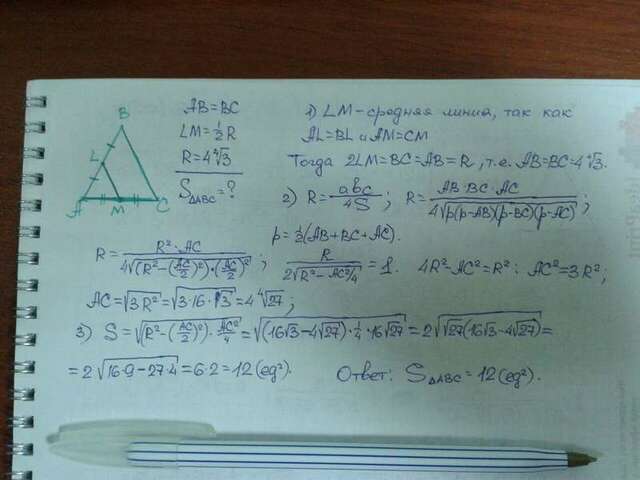 B
L
A M C
AB=BC
LM=½R
R=4∜3
S△ABC=?
1) LM-средняя линия, так как
AL=BL и AM=CM
Тогда 2LM=BC=AB=R, т.е. AB=BC=4∜3.
2) R=abc/4S; R=AB·BC·AC/4√(p(p-AB)(p-BC)(p-AC));
p=½(AB+BC+AC).
R=R²·AC/4√((R²-(AC/2)²)·(AC/2)²); R/2√(R²-AC²/4)=1. 4R²-AC²=R²; AC²=3R²;
AC=√3R²=√3·16·√3=4∜27;
3) S=√((R²-(AC/2)²)·AC²/4)=√((16√3-4√27)·¼·16√27)=2√(√27(16√3-4√27))=
=2√(16·9-27·4)=6·2=12(ед²). Ответ: S△ABC=12(ед²).